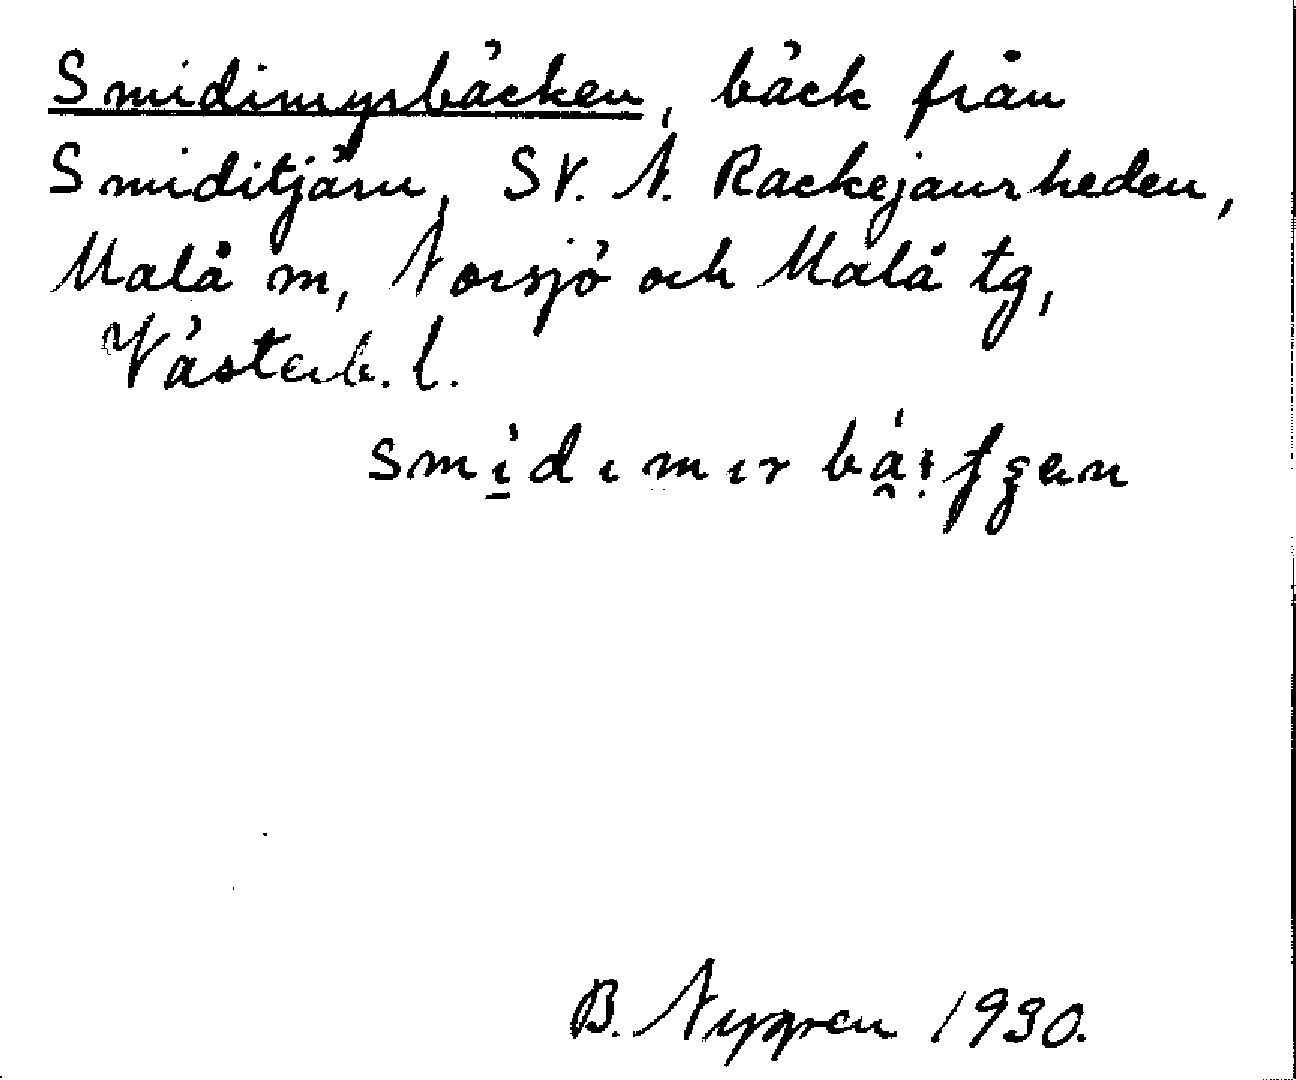 Smidimyrbäcken, bäck från
Smiditjärn, SV. N. Rackejaurheden,
Malå m, Norsjö och Malå tg,
Västerb. l.
B. Nygren 1930.